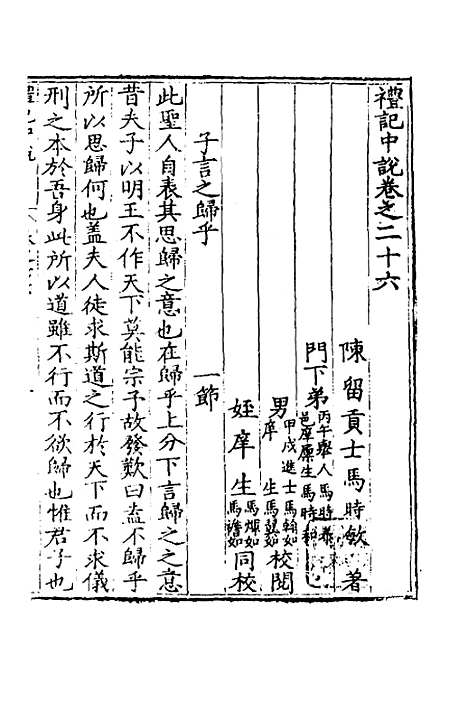 禮記中說卷之二十六
陳留貢士馬時敏著
門下弟丙午舉人馬時泰
邑庠廩生馬時和
男甲戌進士馬翰如
庠生馬競如校閱
姪庠生馬燁如
馬襜如同校
子言之歸乎 一節
此聖人自表其思歸之意也在歸乎上分下言歸之之意
昔夫子以明王不作天下莫能宗予故發歎曰盍不歸乎
所以思歸何也蓋夫人徒求斯道之行於天下而不求儀
刑之本於吾身此所以道雖不行而不欲歸也惟君子也